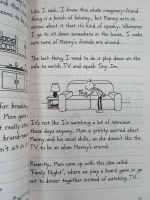 Like I said, I know this whole imaginary-friend
thing is a bunch of baloney, but Manny acts so
serious about it that it's kind of spooky. Whenever
I go to sit down somewhere in the house, I make
sure none of Manny's friends are around.
The last thing I need to do is plop down on the
sofa to watch TV and squash Tiny Jim.
It's not like I'm watching a lot of television
these days anyway. Mom is pretty worried about
Manny and his social skills, so she doesn't like the
TV to be on when Manny's around.
Recently, Mom came up with this idea called
"Family Night", where we play a board game or go
out to dinner together instead of watching TV.